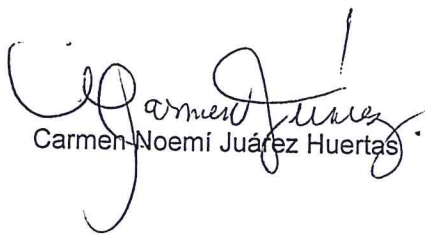 Carmen Juárez.
Carmen Noemí Juárez Huertas